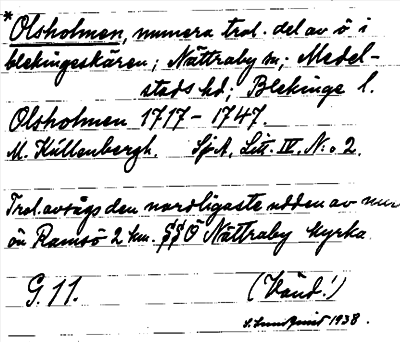 * Olsholmen, numera trol. del av ö i
blekingeskären; Nättraby sn; Medel-
stads hd; Blekinge l.
Olsholmen 1717-1747.
M. Küllenbergh. SjA, Litt. IV. N:o 2.
Trol. avsågs den nordligaste udden av nuv
ön Ramsö 2 km. Ö Nättraby kyrka
G. 11. (Vänd!)
1938.